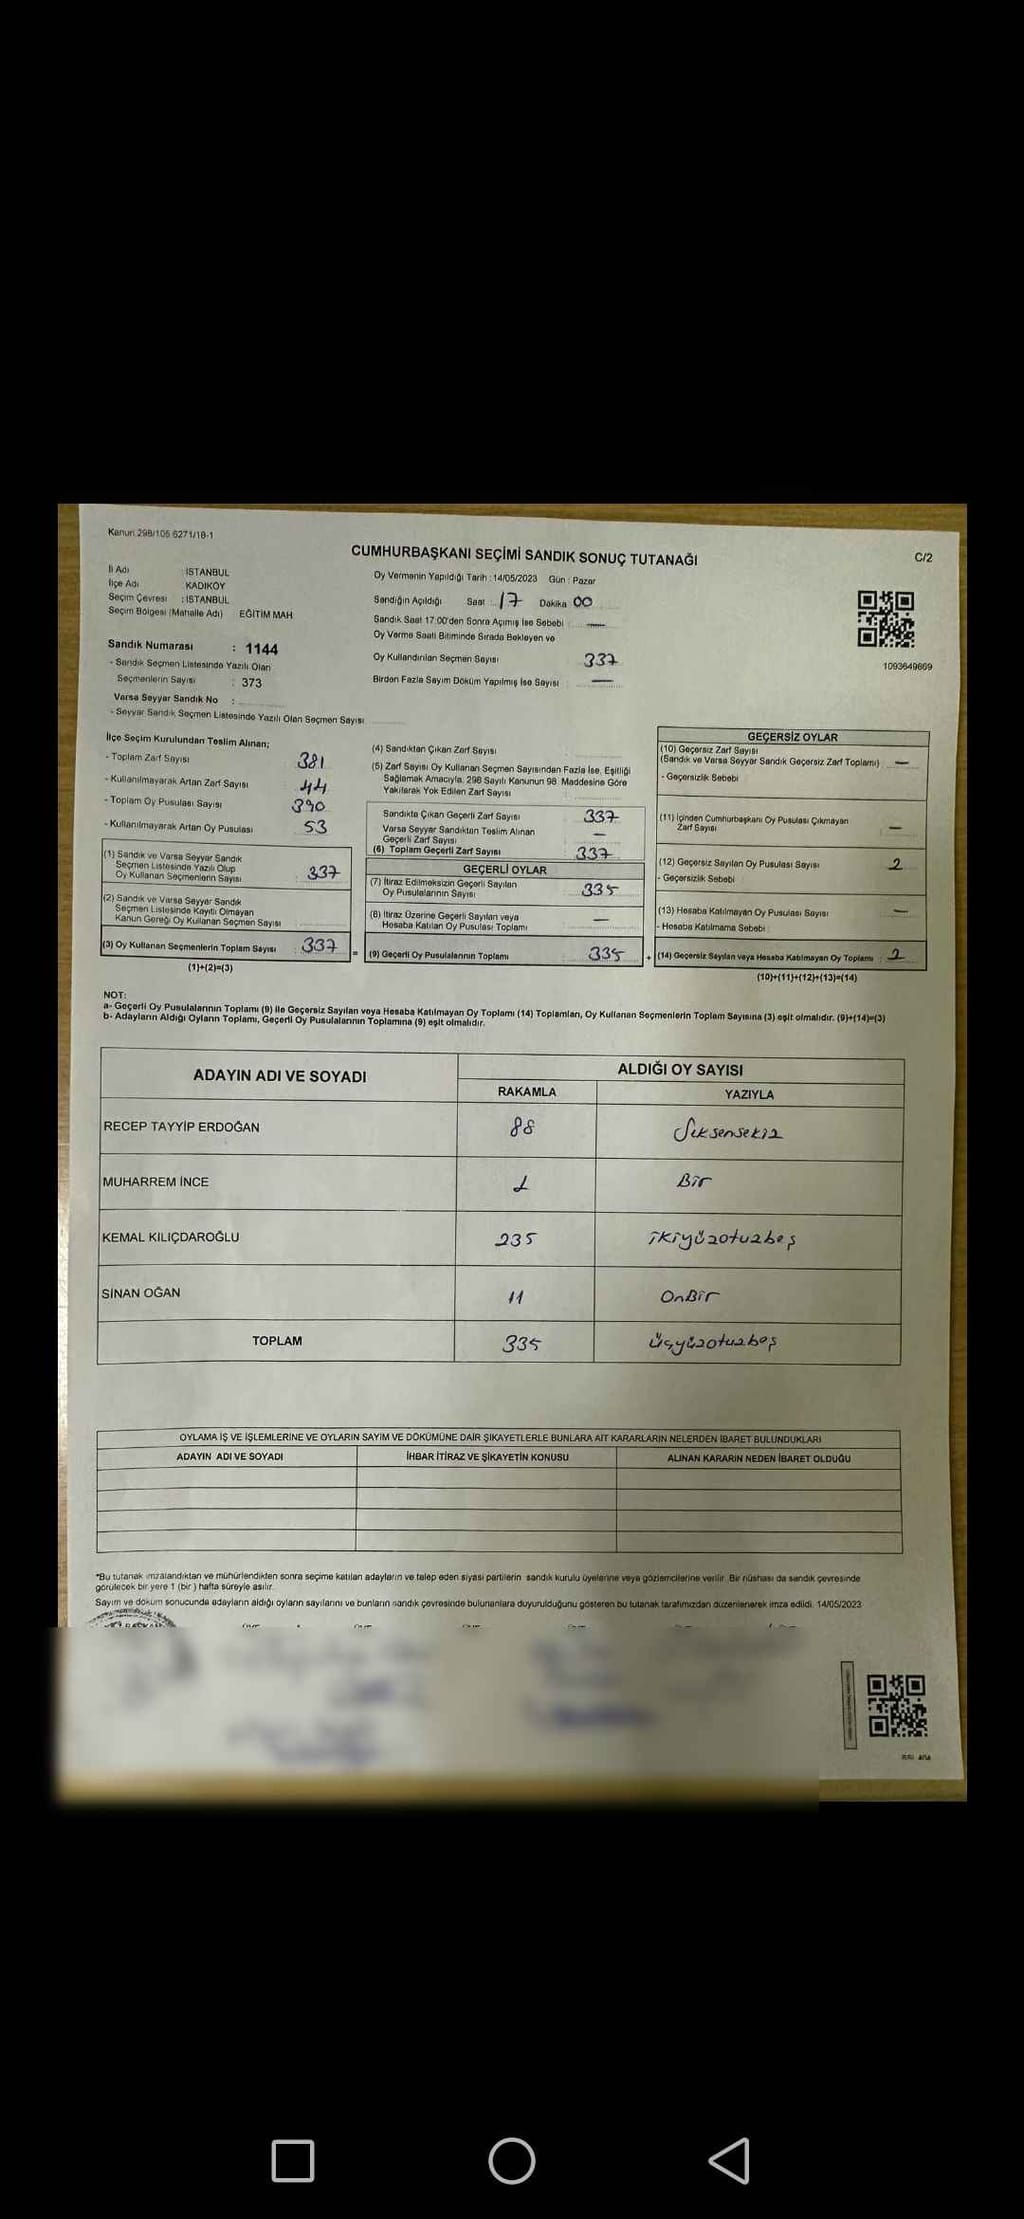 Kanun 298/105 6271/18-1
CUMHURBAŞKANI SEÇİMİ SANDIK SONUÇ TUTANAĞI
C/2
İl Adı : İSTANBUL
İlçe Adı KADIKÖY
Seçim Çevresi : İSTANBUL
Seçim Bölgesi (Mahalle Adı) EĞİTİM MAH
Sandık Numarası : 1144
- Sandık Seçmen Listesinde Yazılı Olan
Seçmenlerin Sayısı : 373
Varsa Seyyar Sandık No :
- Seyyar Sandık Seçmen Listesinde Yazılı Olan Seçmen Sayısı
Oy Vermenin Yapıldığı Tarih : 14/05/2023 Gün : Pazar
Sandığın Açıldığı Saat : 17 Dakika 00
Sandık Saat 17:00'den Sonra Açımış İse Sebebi : —
Oy Verme Saati Bitiminde Sırada Bekleyen ve
Oy Kullandırılan Seçmen Sayısı 337
Birden Fazla Sayım Döküm Yapılmış İse Sayısı : —
1093649869
İlçe Seçim Kurulundan Teslim Alınan;
- Toplam Zarf Sayısı 381
- Kullanılmayarak Artan Zarf Sayısı 44
- Toplam Oy Pusulası Sayısı 390
- Kullanılmayarak Artan Oy Pusulası 53
(1) Sandık ve Varsa Seyyar Sandık
Seçmen Listesinde Yazılı Olup
Oy Kullanan Seçmenlerin Sayısı 337
(2) Sandık ve Varsa Seyyar Sandık
Seçmen Listesinde Kayıtlı Olmayan
Kanun Gereği Oy Kullanan Seçmen Sayısı
(3) Oy Kullanan Seçmenlerin Toplam Sayısı 337
(1)+(2)=(3)
(4) Sandıktan Çıkan Zarf Sayısı
(5) Zarf Sayısı Oy Kullanan Seçmen Sayısından Fazla İse, Eşitliği
Sağlamak Amacıyla, 298 Sayılı Kanunun 98. Maddesine Göre
Yakılarak Yok Edilen Zarf Sayısı
Sandıkta Çıkan Geçerli Zarf Sayısı 337
Varsa Seyyar Sandıktan Teslim Alınan
Geçerli Zarf Sayısı —
(6) Toplam Geçerli Zarf Sayısı 337
GEÇERLİ OYLAR
(7) İtiraz Edilmeksizin Geçerli Sayılan
Oy Pusulalarının Sayısı 335
(8) İtiraz Üzerine Geçerli Sayılan veya
Hesaba Katılan Oy Pusulası Toplamı —
= (9) Geçerli Oy Pusulalarının Toplamı 335
GEÇERSİZ OYLAR
(10) Geçersiz Zarf Sayısı
(Sandık ve Varsa Seyyar Sandık Geçersiz Zarf Toplamı) —
- Geçersizlik Sebebi
(11) İçinden Cumhurbaşkanı Oy Pusulası Çıkmayan
Zarf Sayısı —
(12) Geçersiz Sayılan Oy Pusulası Sayısı 2
- Geçersizlik Sebebi
(13) Hesaba Katılmayan Oy Pusulası Sayısı —
- Hesaba Katılmama Sebebi
+ (14) Geçersiz Sayılan veya Hesaba Katılmayan Oy Toplamı : 2
(10)+(11)+(12)+(13)=(14)
NOT:
a- Geçerli Oy Pusulalarının Toplamı (9) ile Geçersiz Sayılan veya Hesaba Katılmayan Oy Toplamı (14) Toplamları, Oy Kullanan Seçmenlerin Toplam Sayısına (3) eşit olmalıdır. (9)+(14)=(3)
b- Adayların Aldığı Oyların Toplamı, Geçerli Oy Pusulalarının Toplamına (9) eşit olmalıdır.
ADAYIN ADI VE SOYADI ALDIĞI OY SAYISI
RAKAMLA YAZIYLA
RECEP TAYYİP ERDOĞAN 88 Seksensekiz
MUHARREM İNCE 1 Bir
KEMAL KILIÇDAROĞLU 235 ikiyüzotuzbeş
SİNAN OĞAN 11 OnBir
TOPLAM 335 Üçyüzotuzbeş
OYLAMA İŞ VE İŞLEMLERİNE VE OYLARIN SAYIM VE DÖKÜMÜNE DAİR ŞİKAYETLERLE BUNLARA AİT KARARLARIN NELERDEN İBARET BULUNDUKLARI
ADAYIN ADI VE SOYADI İHBAR İTİRAZ VE ŞİKAYETİN KONUSU ALINAN KARARIN NEDEN İBARET OLDUĞU
*Bu tutanak imzalandıktan ve mühürlendikten sonra seçime katılan adayların ve talep eden siyasi partilerin sandık kurulu üyelerine veya gözlemcilerine verilir. Bir nüshası da sandık çevresinde
görülecek bir yere 1 (bir) hafta süreyle asılır.
Sayım ve döküm sonucunda adayların aldığı oyların sayılarını ve bunların sandık çevresinde bulunanlara duyurulduğunu gösteren bu tutanak tarafımızdan düzenlenerek imza edildi. 14/05/2023